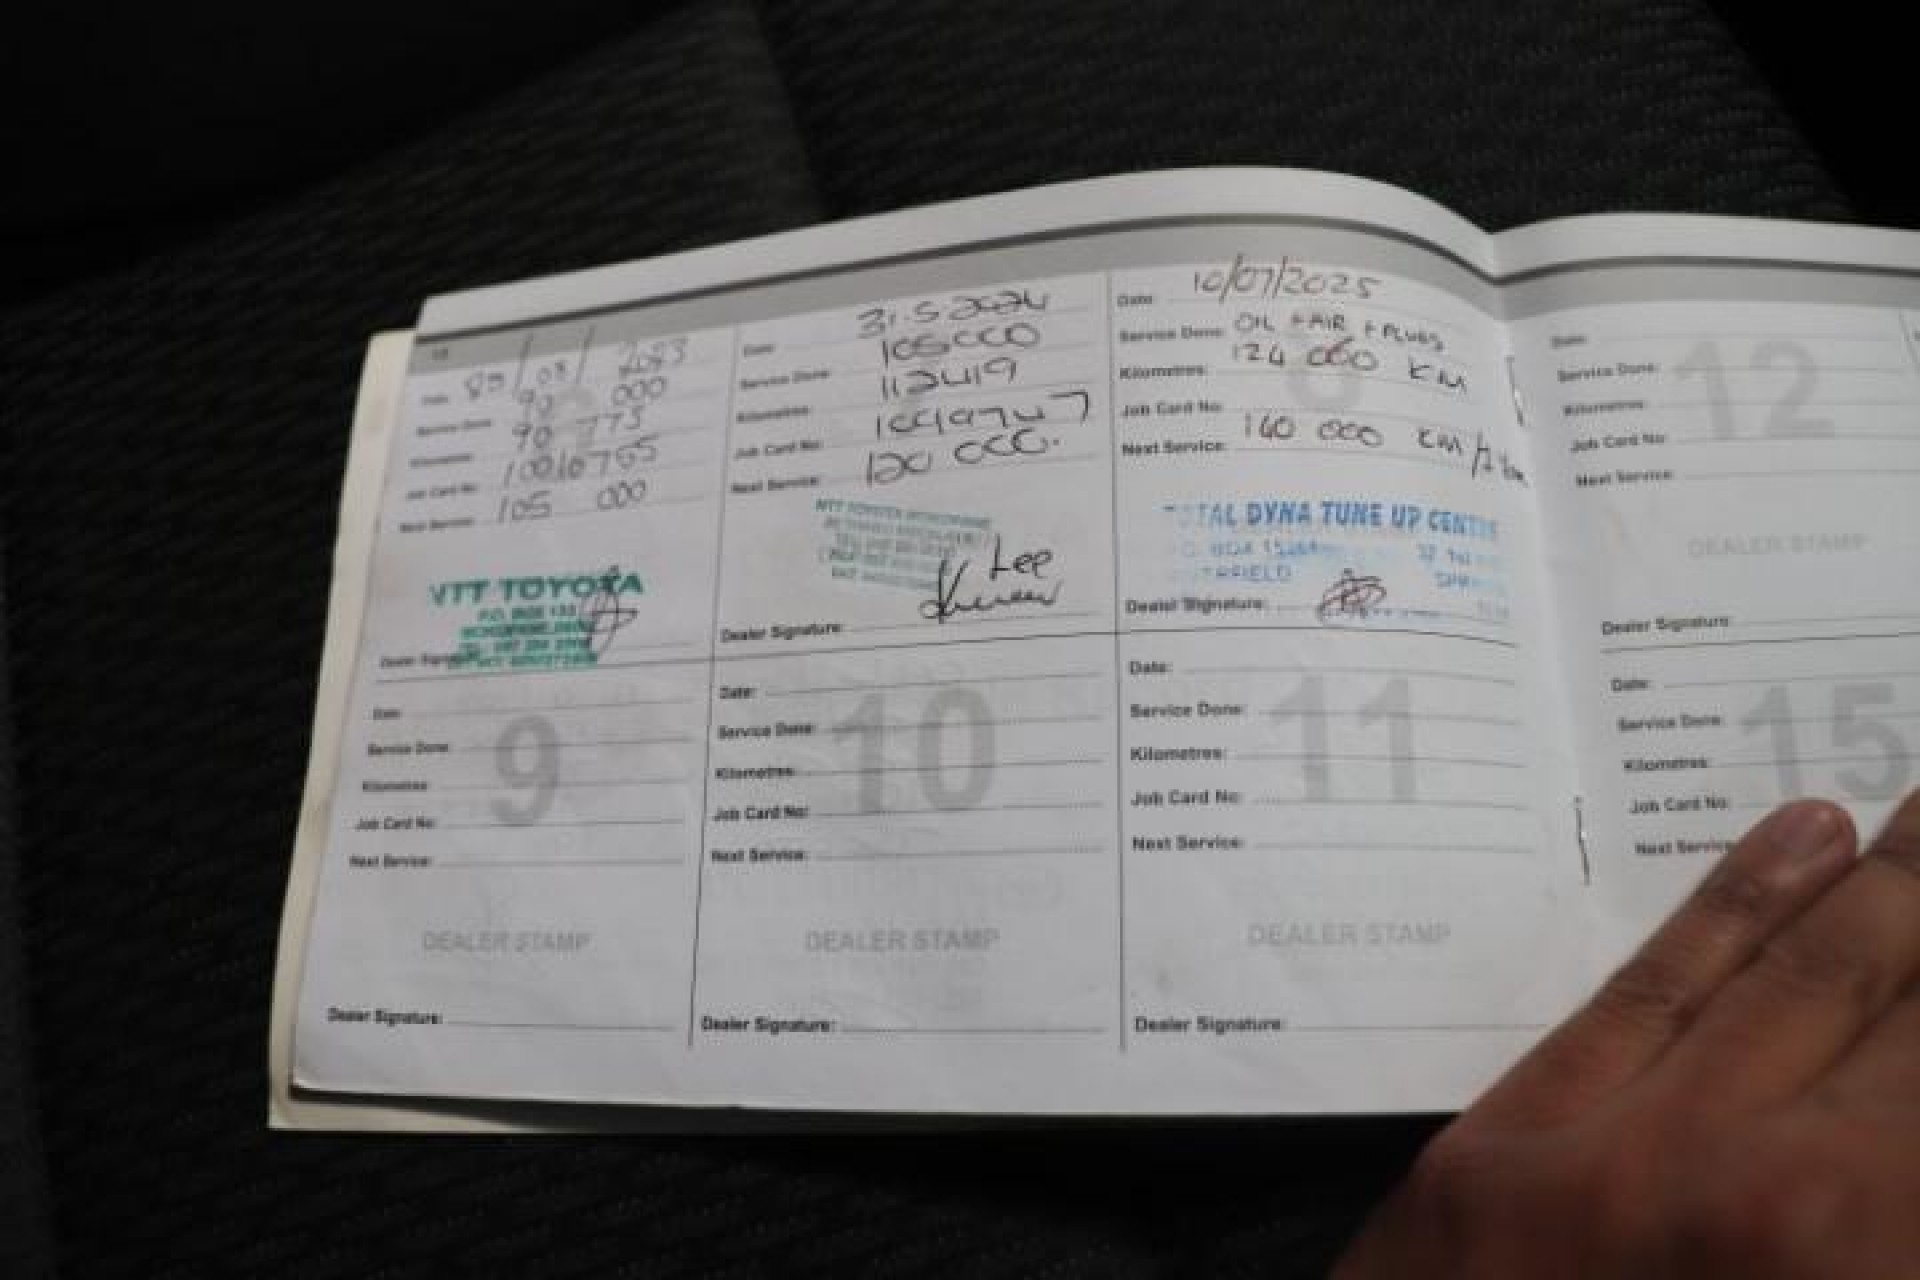 Date:
Service Done: 90 000
Kilometres: 90 773
Job Card No:
Next Service: 105 000
NTT TOYOTA
Dealer Signature:
Date: 31.5.2024
Service Done: 105000
Kilometres: 112419
Job Card No:
Next Service: 120 000.
NTT TOYOTA
Lee
Dealer Signature:
Date: 10/07/2025
Service Done: OIL + AIR + PLUGS
Kilometres: 124 000 KM
Job Card No:
Next Service: 140 000 KM
TOTAL DYNA TUNE UP CENTRE
Dealer Signature:
12
Date:
Service Done:
Kilometres:
Job Card No:
Next Service:
DEALER STAMP
Dealer Signature:
9
Date:
Service Done:
Kilometres:
Job Card No:
Next Service:
DEALER STAMP
Dealer Signature:
10
Date:
Service Done:
Kilometres:
Job Card No:
Next Service:
DEALER STAMP
Dealer Signature:
11
Date:
Service Done:
Kilometres:
Job Card No:
Next Service:
DEALER STAMP
Dealer Signature:
15
Date:
Service Done:
Kilometres:
Job Card No:
Next Service